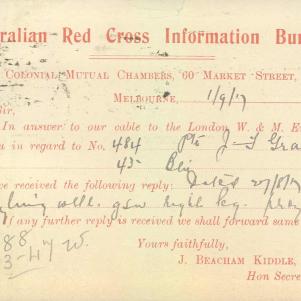 ralian Red Cross Information Bur
Colonial Mutual Chambers, 60 Market Street,
Melbourne, 1/9/17
ir,
In answer to our cable to the London W. & M. E
u in regard to No. 484 Pte J. T. Gra
45 Bn
ve received the following reply: Dated 27/8/17
well. gsw right leg.
If any further reply is received we shall forward same
88
3-47 W.
Yours faithfully,
J. BEACHAM KIDDLE,
Hon Secre